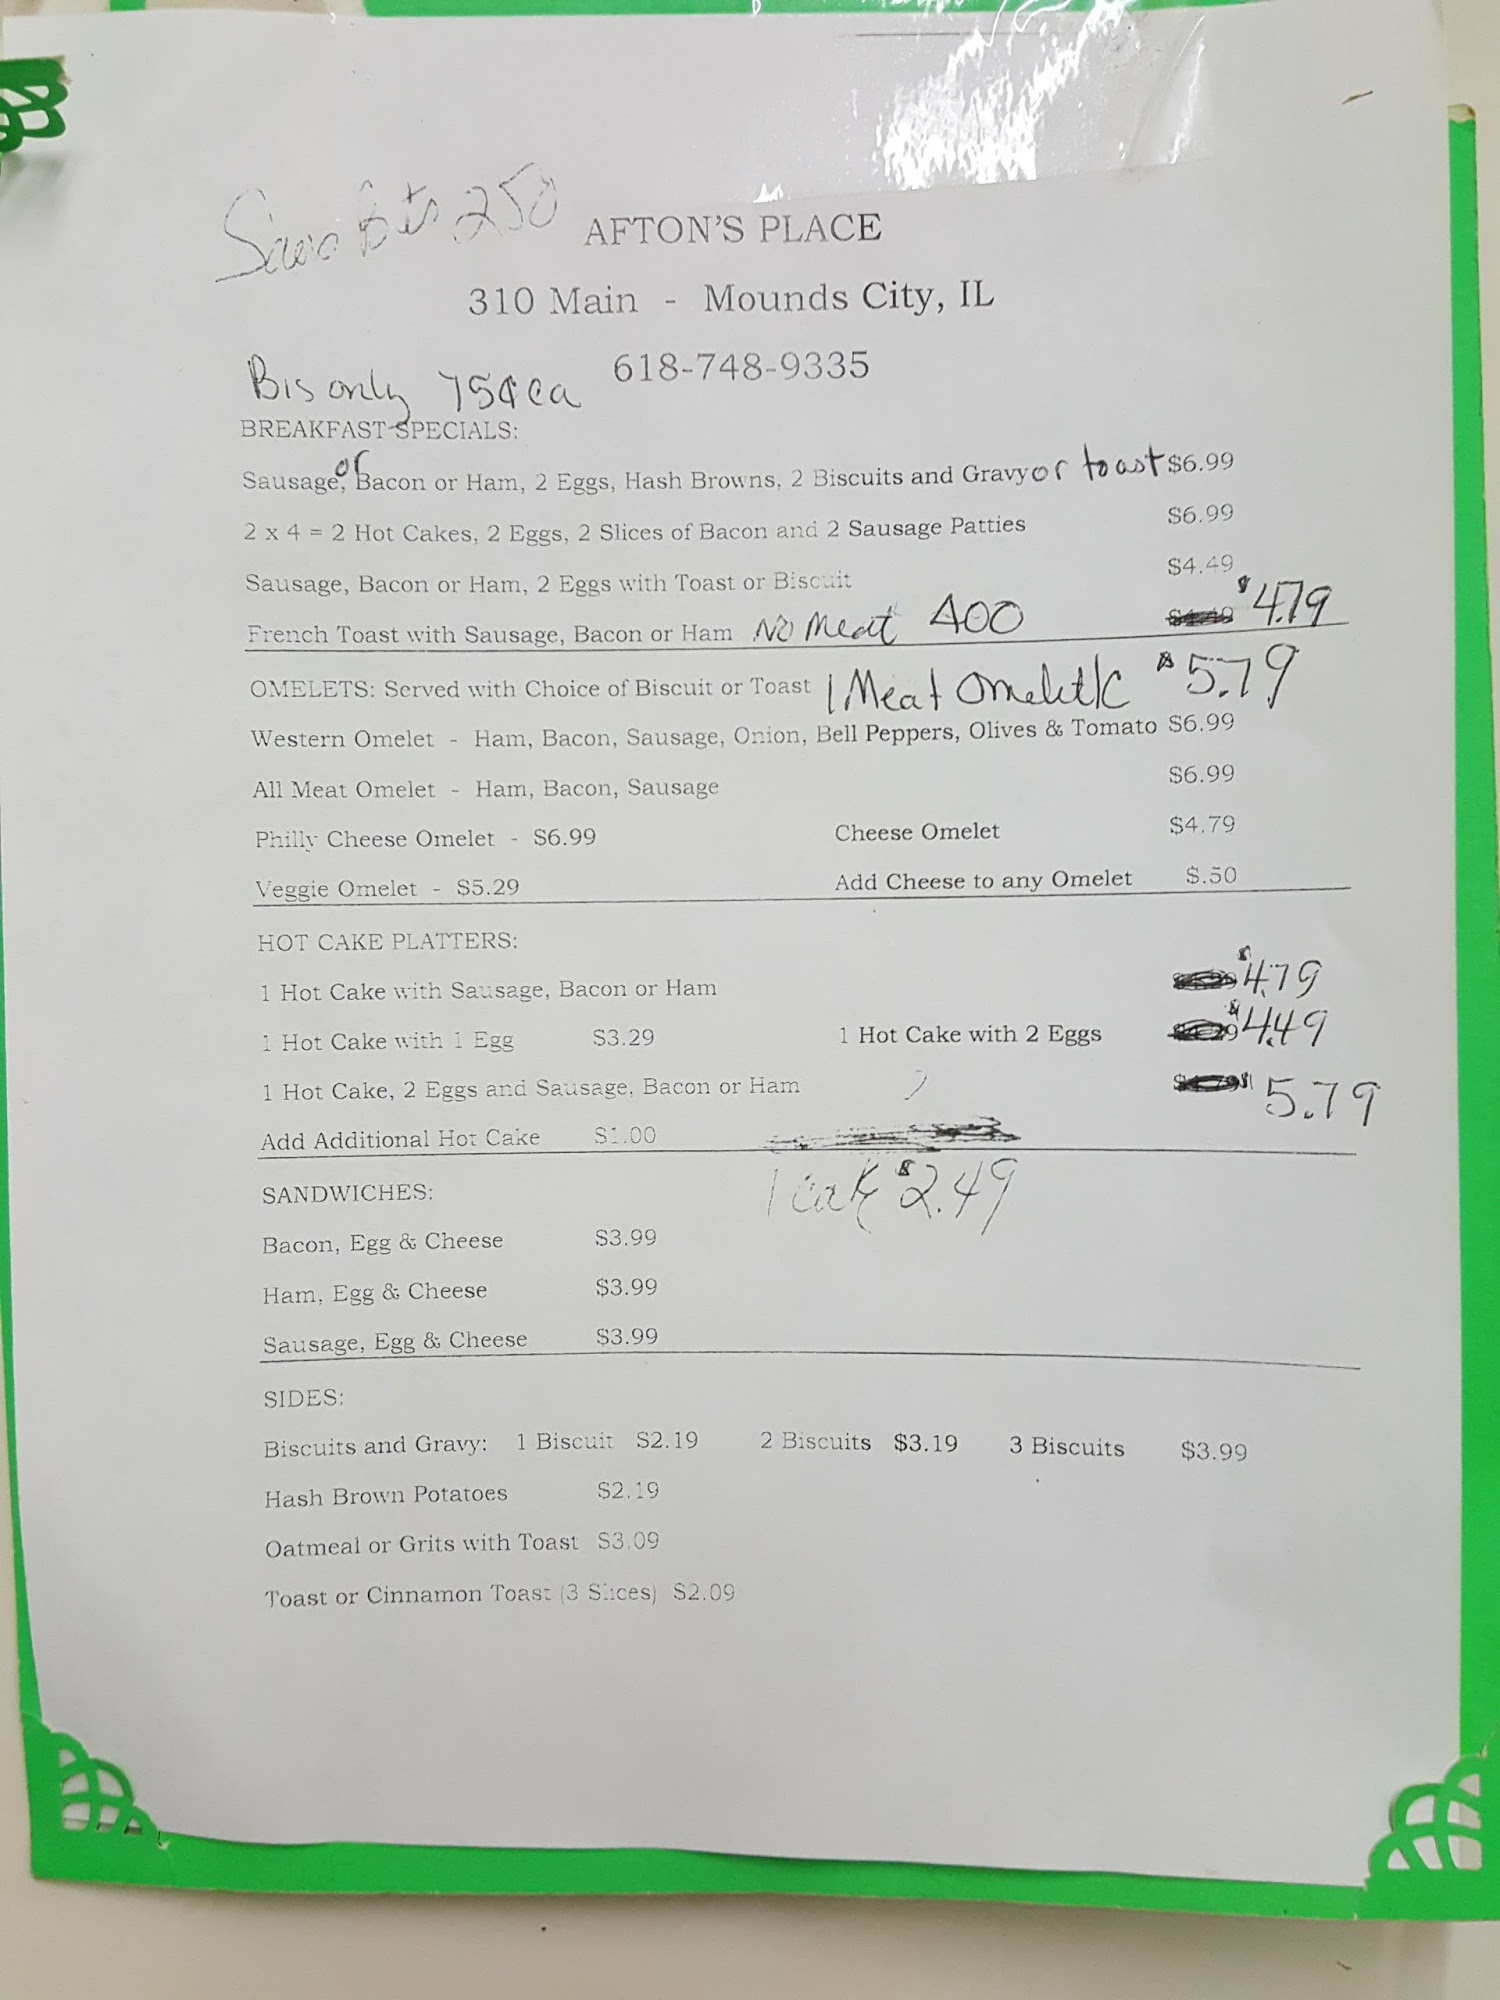 250
AFTON'S PLACE
310 Main - Mounds City, IL
618-748-9335
Bis only 75¢ ea
BREAKFAST SPECIALS:
Sausage, or Bacon or Ham, 2 Eggs, Hash Browns, 2 Biscuits and Gravy or toast $6.99
2 x 4 = 2 Hot Cakes, 2 Eggs, 2 Slices of Bacon and 2 Sausage Patties $6.99
Sausage, Bacon or Ham, 2 Eggs with Toast or Biscuit $4.49
French Toast with Sausage, Bacon or Ham No Meat 400 $4.79
OMELETS: Served with Choice of Biscuit or Toast 1 Meat Omelet/c $5.79
Western Omelet - Ham, Bacon, Sausage, Onion, Bell Peppers, Olives & Tomato $6.99
All Meat Omelet - Ham, Bacon, Sausage $6.99
Philly Cheese Omelet - $6.99 Cheese Omelet $4.79
Veggie Omelet - $5.29 Add Cheese to any Omelet $.50
HOT CAKE PLATTERS:
1 Hot Cake with Sausage, Bacon or Ham $4.79
1 Hot Cake with 1 Egg $3.29 1 Hot Cake with 2 Eggs $4.49
1 Hot Cake, 2 Eggs and Sausage, Bacon or Ham $5.79
Add Additional Hot Cake $1.00
1 cake $2.49
SANDWICHES:
Bacon, Egg & Cheese $3.99
Ham, Egg & Cheese $3.99
Sausage, Egg & Cheese $3.99
SIDES:
Biscuits and Gravy: 1 Biscuit $2.19 2 Biscuits $3.19 3 Biscuits $3.99
Hash Brown Potatoes $2.19
Oatmeal or Grits with Toast $3.09
Toast or Cinnamon Toast (3 Slices) $2.09